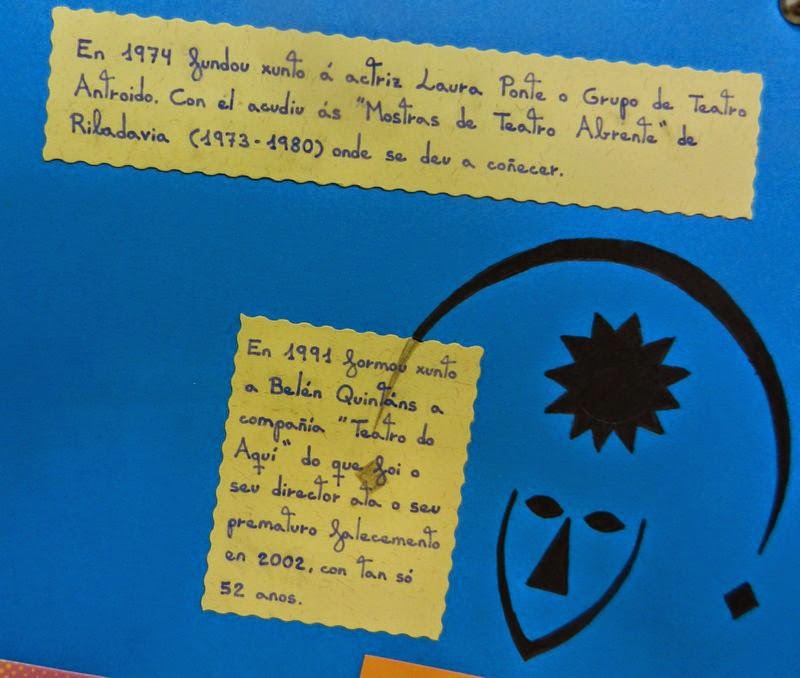 En 1974 fundou xunto á actriz Laura Ponte o Grupo de Teatro
Antroido. Con el acudiu ás "Mostras de Teatro Abrente" de
Ribadavia (1973-1980) onde se deu a coñecer.
En 1991 formou xunto
a Belén Quintáns a
compañía "Teatro do
Aquí" do que foi o
seu director ata o seu
prematuro falecemento
en 2002, con tan só
52 anos.